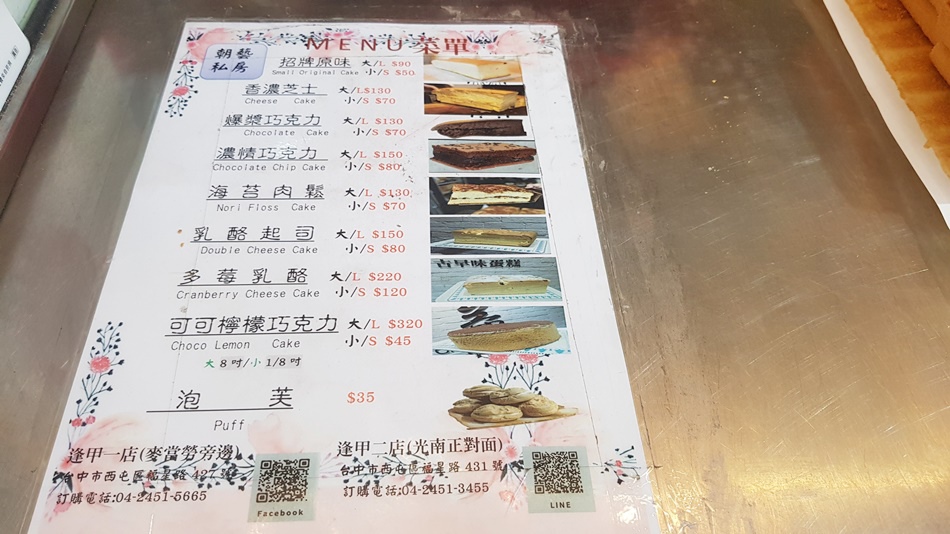 MENU菜單
朝藝
私房
招牌原味 大/L $90
Small Original Cake 小/S $50
香濃芝士 大/L$130
Cheese Cake 小/S $70
爆漿巧克力 大/L $130
Chocolate Cake 小/S $70
濃情巧克力 大/L $150
Chocolate Chip Cake 小/S $80
海苔肉鬆 大/L $130
Nori Floss Cake 小/S $70
乳酪起司 大/L $150
Double Cheese Cake 小/S $80
古早味蛋糕
多莓乳酪 大/L $220
Cranberry Cheese Cake 小/S $120
可可檸檬巧克力 大/L $320
Choco Lemon Cake 小/S $45
大 8吋/小 1/8吋
泡芙 $35
Puff
逢甲一店(麥當勞旁邊)
台中市西屯區福星路 427 號
訂購電話:04-2451-5665
Facebook
逢甲二店(光南正對面)
台中市西屯區福星路 431 號
訂購電話:04-2451-3455
LINE